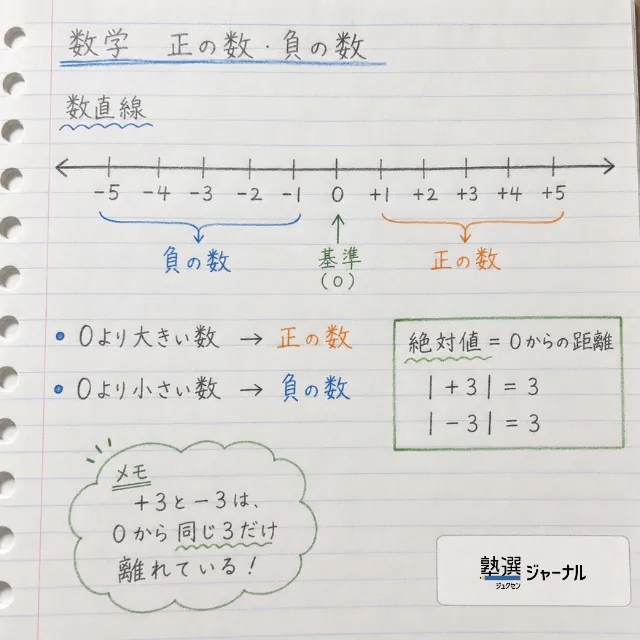 数学 正の数・負の数
数直線
-5 -4 -3 -2 -1 0 +1 +2 +3 +4 +5
負の数 基準 正の数
(0)
• 0より大きい数 → 正の数
• 0より小さい数 → 負の数
絶対値 = 0からの距離
|+3| = 3
|-3| = 3
メモ
+3と-3は、
0から同じ3だけ
離れている!
塾選ジャーナル
ジュクセン